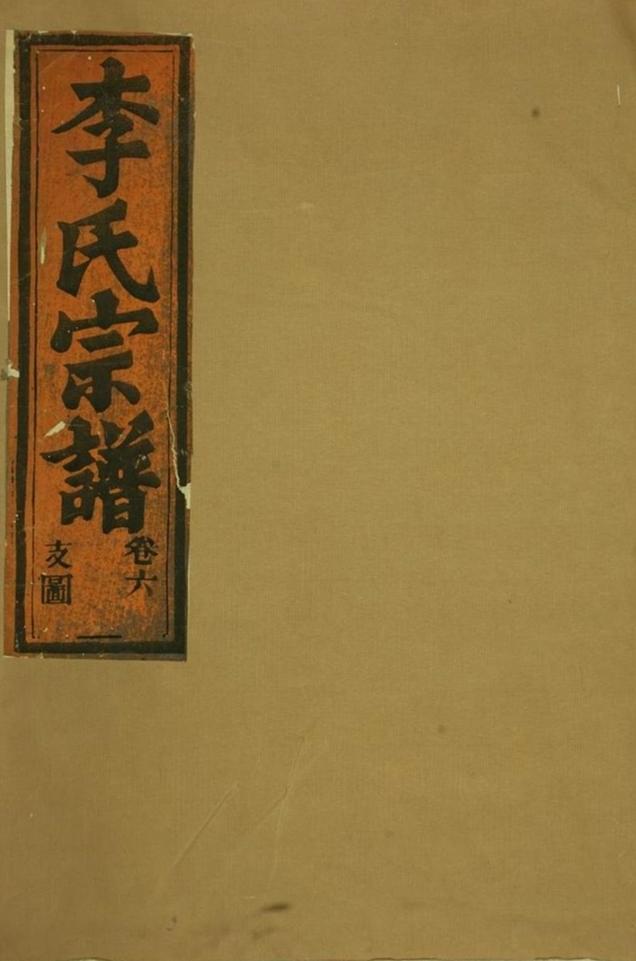 李氏宗譜
卷六
支圖